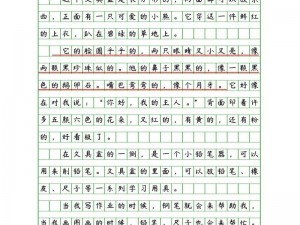 西，正面有一只可爱的小熊。它穿这一件鲜红
的上衣，趴在翠绿的草地上。
它的脸圆乎乎的，两只眼睛又小又是，像
两颗黑珍珠似的。他的鼻子黑黑的，像一颗黑
色的鹅卵石。嘴巴弯弯的，像个月牙。它好像
在对我说：“你好，我的主人。”背面印着许
多五颜六色的花朵，又红的，又黄的，还有粉
的，好看极了。
在文具盒的一侧，是一个小铅笔器，可以
用来削铅笔。文具盒的里面，可以放铅笔、橡
皮、尺子等一系列学习用具。
当我写作业的时候，钢笔就会来帮助我，
当我画图画的时候，铅笔、尺子也会来帮助我